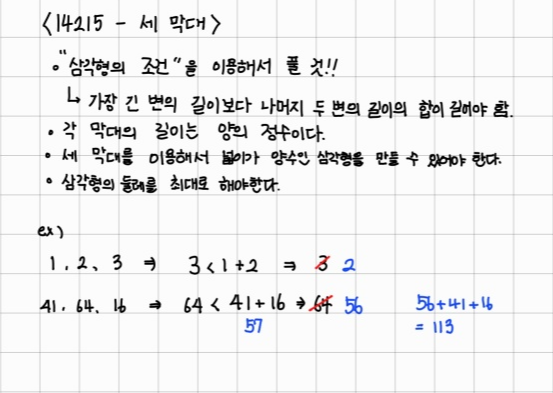 <14215 - 세 막대>
• "삼각형의 조건"을 이용해서 풀 것!!
↳ 가장 긴 변의 길이보다 나머지 두 변의 길이의 합이 길어야 함.
• 각 막대의 길이는 양의 정수이다.
• 세 막대를 이용해서 넓이가 양수인 삼각형을 만들 수 있어야 한다.
• 삼각형의 둘레를 최대로 해야한다.
ex)
1, 2, 3 ⇒ 3 < 1+2 ⇒ 3 2
41, 64, 16 ⇒ 64 < 41+16 ⇒ 64 56 56+41+16
57 = 113